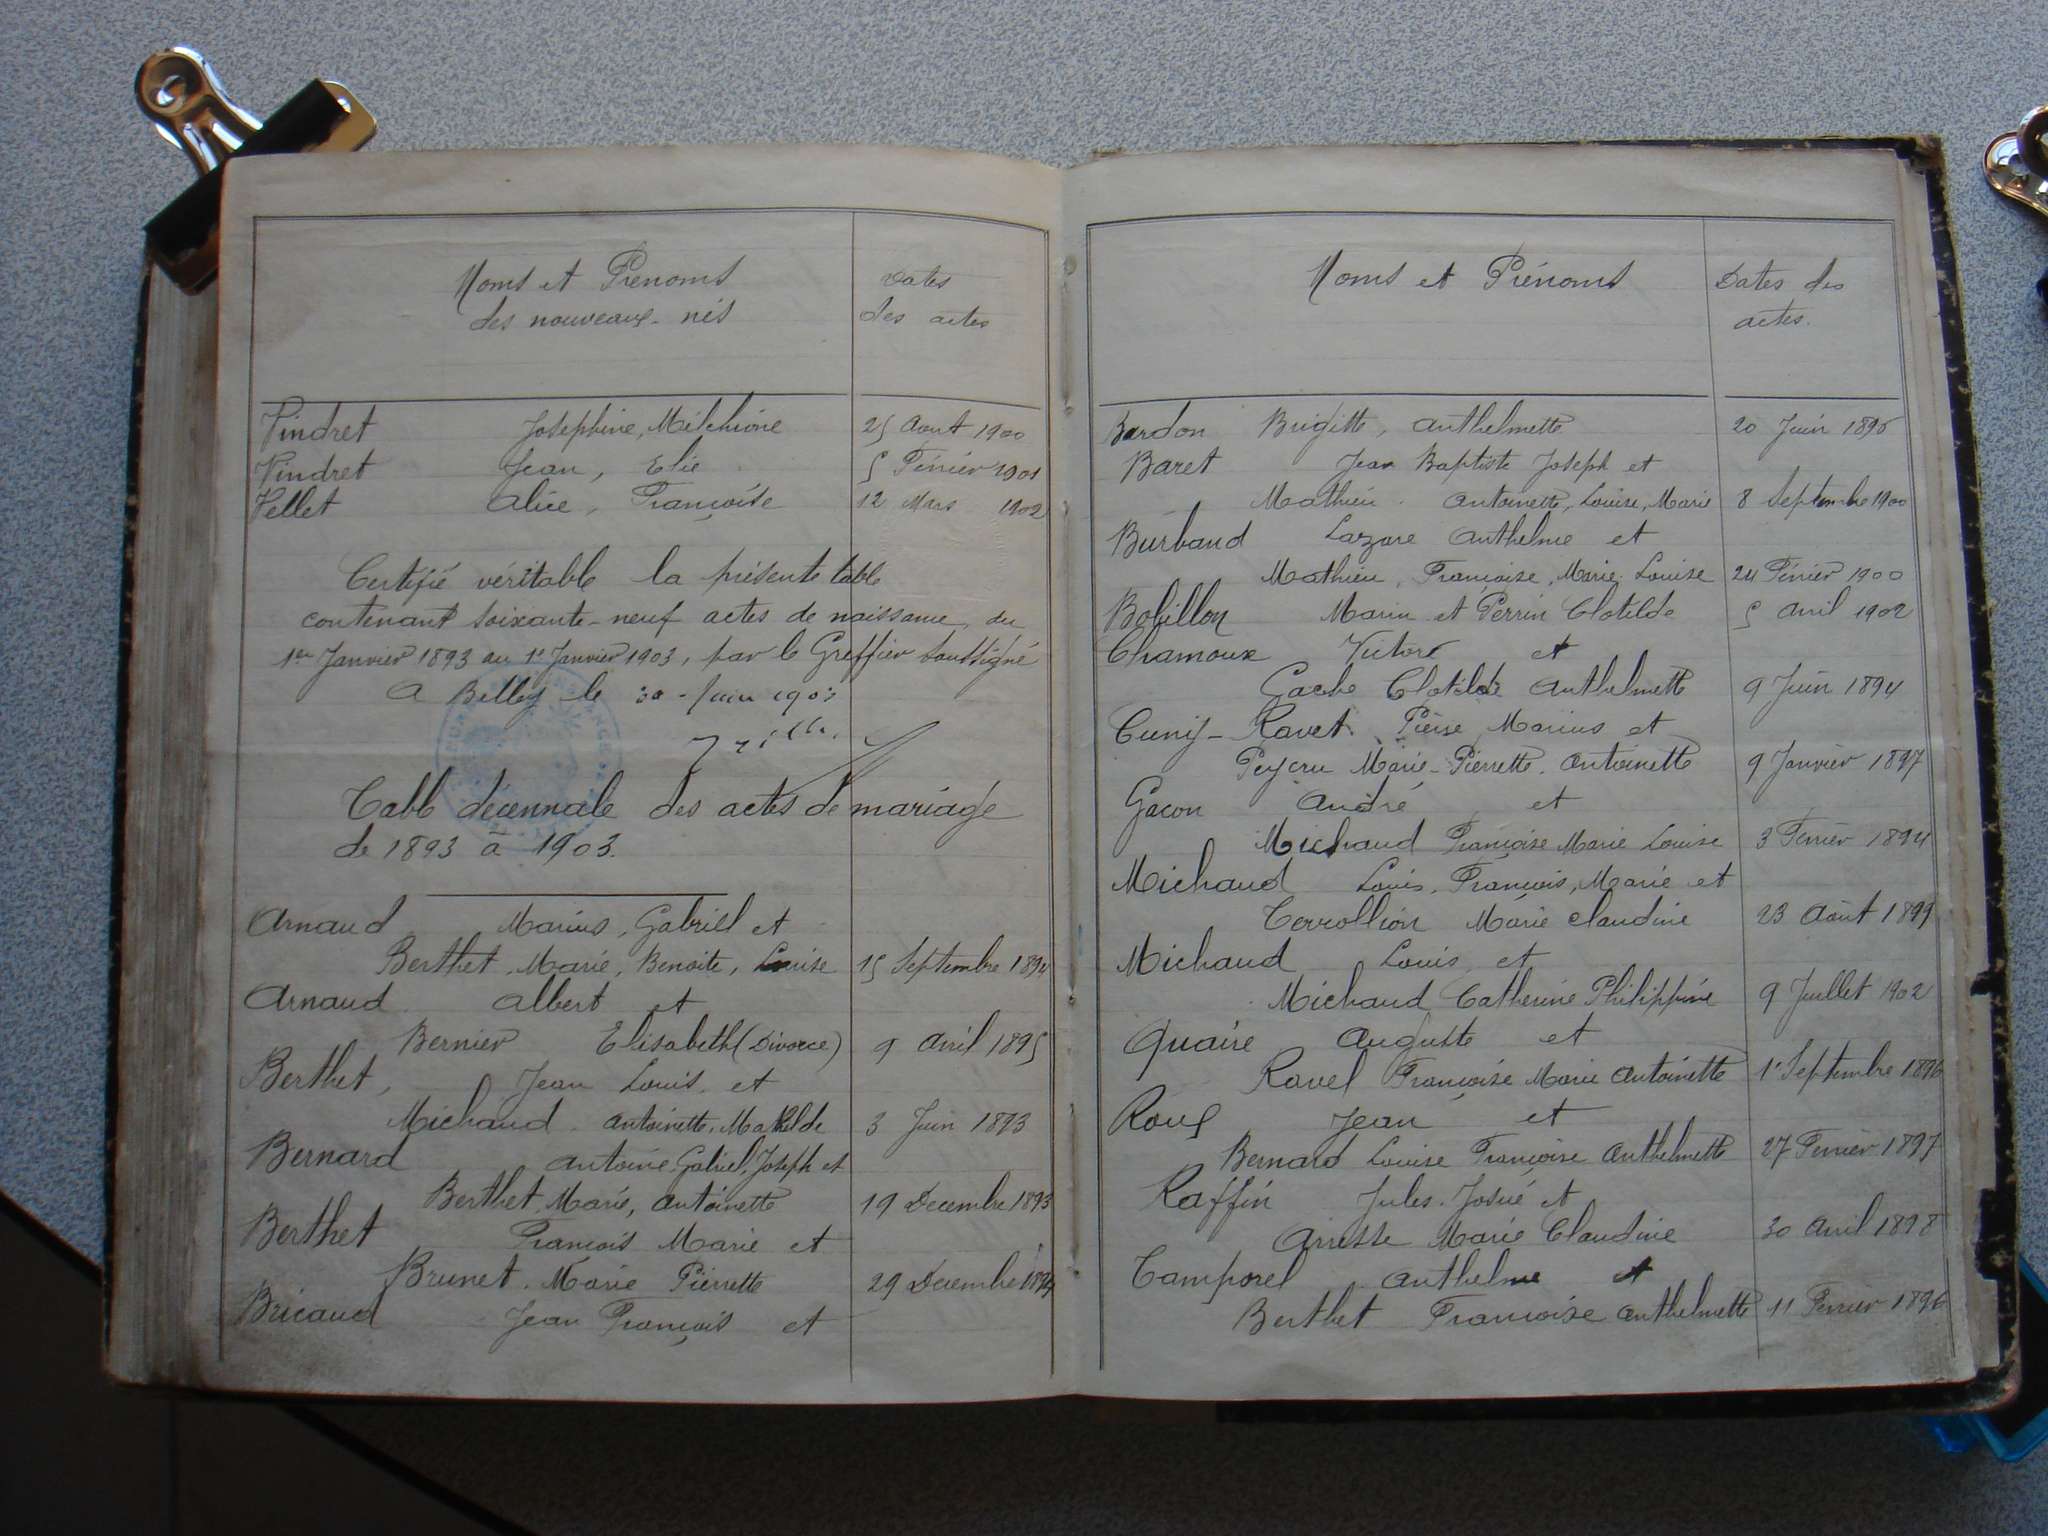 Noms et Prénoms
des nouveaux-nés
Dates
des actes
Vindret Joséphine, Melchiore 25 Aout 1900
Vindret Jean, Elie 5 Février 1901
Vellet Alice, Françoise 12 Mars 1902
Certifié véritable la présente table
contenant soixante-neuf actes de naissance, du
1er Janvier 1893 au 1er Janvier 1903, par le Greffier soussigné
A Belley le 30 Juin 1903
Table décennale des actes de mariage
de 1893 à 1903.
Arnaud Marius, Gabriel et
Berthet Marie, Benoite, Louise 15 Septembre 1894
Arnaud Albert et
Bernier Elisabeth (Divorce) 9 Avril 1895
Berthet, Jean Louis et
Michaud Antoinette, Mathilde 3 Juin 1893
Bernard Antoine Gabriel, Joseph et
Berthet, Marie, Antoinette 19 Decembre 1893
Berthet François Marie et
Brunet Marie Pierrette 29 Decembre 1894
Bricaud Jean François et
Noms et Prénoms
Dates des
actes.
Bardon Brigitte, Anthelmette 20 Juin 1896
Baret Jean Baptiste Joseph et
Mathieu Antoinette, Louise, Marie 8 Septembre 1900
Burbaud Lazare Anthelme et
Mathieu, Françoise, Marie Louise 24 Février 1900
Bobillon Marin et Perrin Clotilde 5 Avril 1902
Chamoux Victor et
Gache Clotilde Anthelmette 9 Juin 1894
Cuny-Ravet Pierre, Marius et
Peycru Marie-Pierrette Antoinette 9 Janvier 1897
Gacon André et
Michaud Françoise Marie Louise 3 Février 1894
Michaud Louis, François, Marie et
Terrollion Marie Claudine 23 Août 1899
Michaud Louis et
Michaud Catherine Philippine 9 Juillet 1902
Quaire Auguste et
Ravel Françoise Marie Antoinette 1er Septembre 1896
Roux Jean et
Bernard Louise Françoise Anthelmette 27 Fevrier 1897
Raffin Jules Josué et
Marie Claudine 30 Avril 1898
Tamporel Anthelme et
Berthet Françoise Anthelmette 11 Fevrier 1896